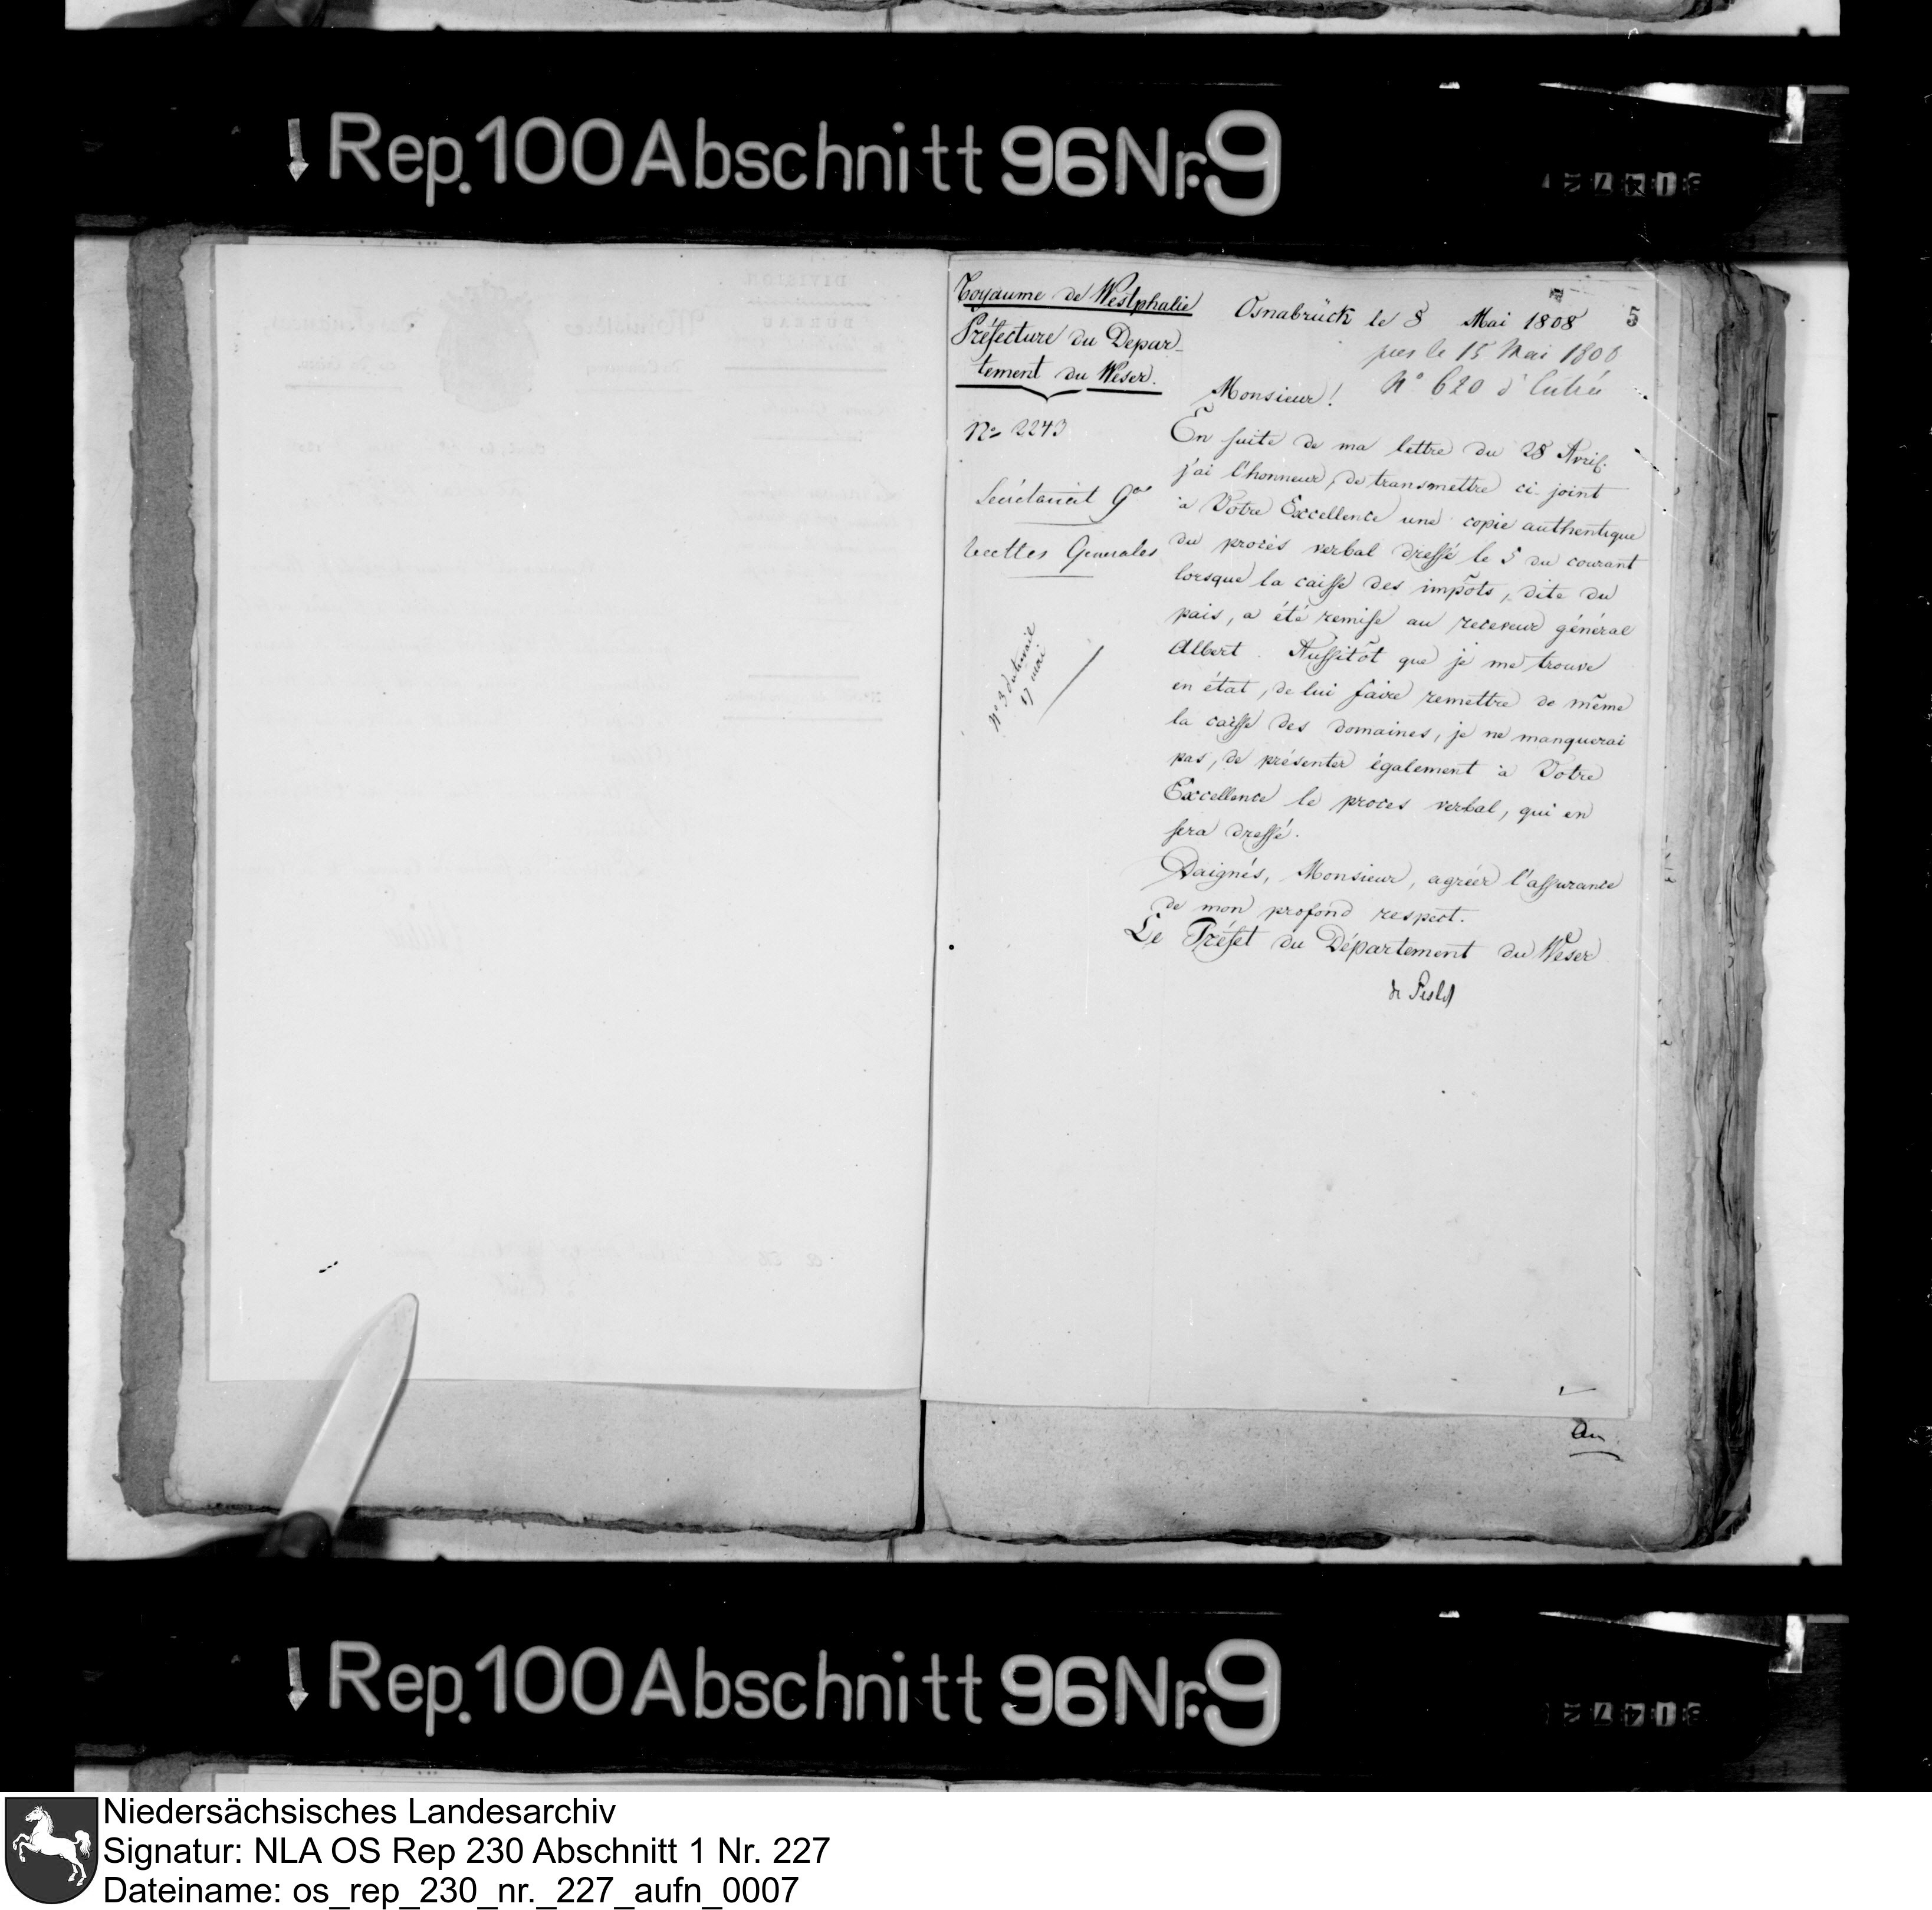 Rep. 100 Abschnitt 96 Nr. 9
Royaume de Westphalie
Préfecture du Depar-
tement du Weser.
No 2243
Secrétariat Gal
Recettes Generales
No 3 du travail
17 mai
5
Osnabrück le 8 Mai 1808
le 15 Mai 1808
No 620 d'Entrée
Monsieur!
En suite de ma lettre du 28 Avril.
j'ai l'honneur, de transmettre ci-joint
à Votre Excellence une copie authentique
du procès verbal dressé le 5 du courant
lorsque la caisse des impôts, dite du
pais, a été remise au receveur général
Albert. Aussitôt que je me trouve
en état, de lui faire remettre de même
la caisse des domaines, je ne manquerai
pas, de présenter également à Votre
Excellence le proces verbal, qui en
sera dressé.
Daignés, Monsieur, agréér l'assurance
de mon profond respect.
Le Préfet du Département du Weser
de Pestel
An
Rep. 100 Abschnitt 96 Nr. 9
Niedersächsisches Landesarchiv
Signatur: NLA OS Rep 230 Abschnitt 1 Nr. 227
Dateiname: os_rep_230_nr._227_aufn_0007